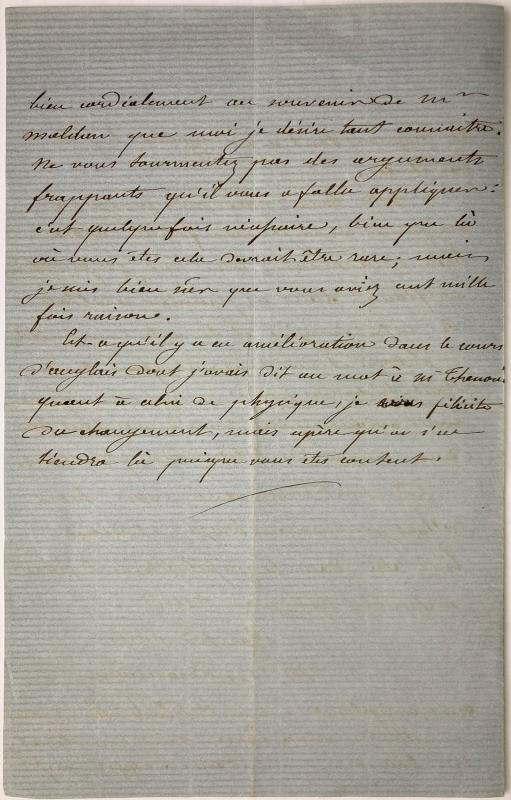 bien cordialement au souvenir de Mr
Maldan que moi je désire tant connaître.
Ne vous tourmentez pas des arguments
frappants qu'il vous a fallu appliquer :
c'est quelquefois nécessaire, bien que là
où vous êtes cela devrait être rare ; mais
je suis bien sûr que vous aviez cent mille
fois raison.
Est-ce qu'il y a eu amélioration dans le cours
d'anglais dont j'avais dit un mot à Mr
quant à celui de physique, je vous félicite
du changement, mais espère qu'on s'en
tiendra là puisque vous êtes content.